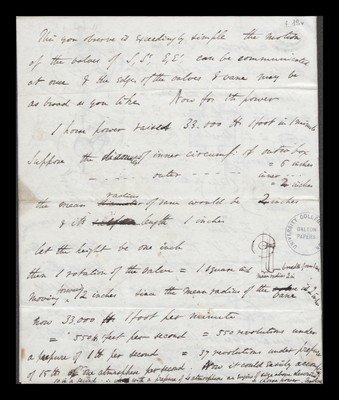 This you observe is exceedingly simple the motion
of the valves of S, S', E, E' can be communicated
at once & the edges of the valves & vane may be
as broad as you like. Now for the power
1 horse power raises 33.000 lbs 1 foot in 1 minute
Suppose the of inner circumf. of outer box
= 5 inches
outer inner
= 2 inches
the mean radius of vane would be 2 inches
& its length 1 inches
Let the height be one inch
then 1 rotation of the valve = 1 square inch
mean radius 2 in
moving forward 12 inches since the mean radius of the vane is 2 inches
Now 33,000 lbs 1 foot per minute
= 550 feet per second = 550 revolutions under
a pressure of 1 lb per second = 37 revolutions under pressure
of 15 lb the atmosphere per second. Now it could easily
with a pressure of atmospheres
UNIVERSITY COLLEGE
GALTON
PAPERS